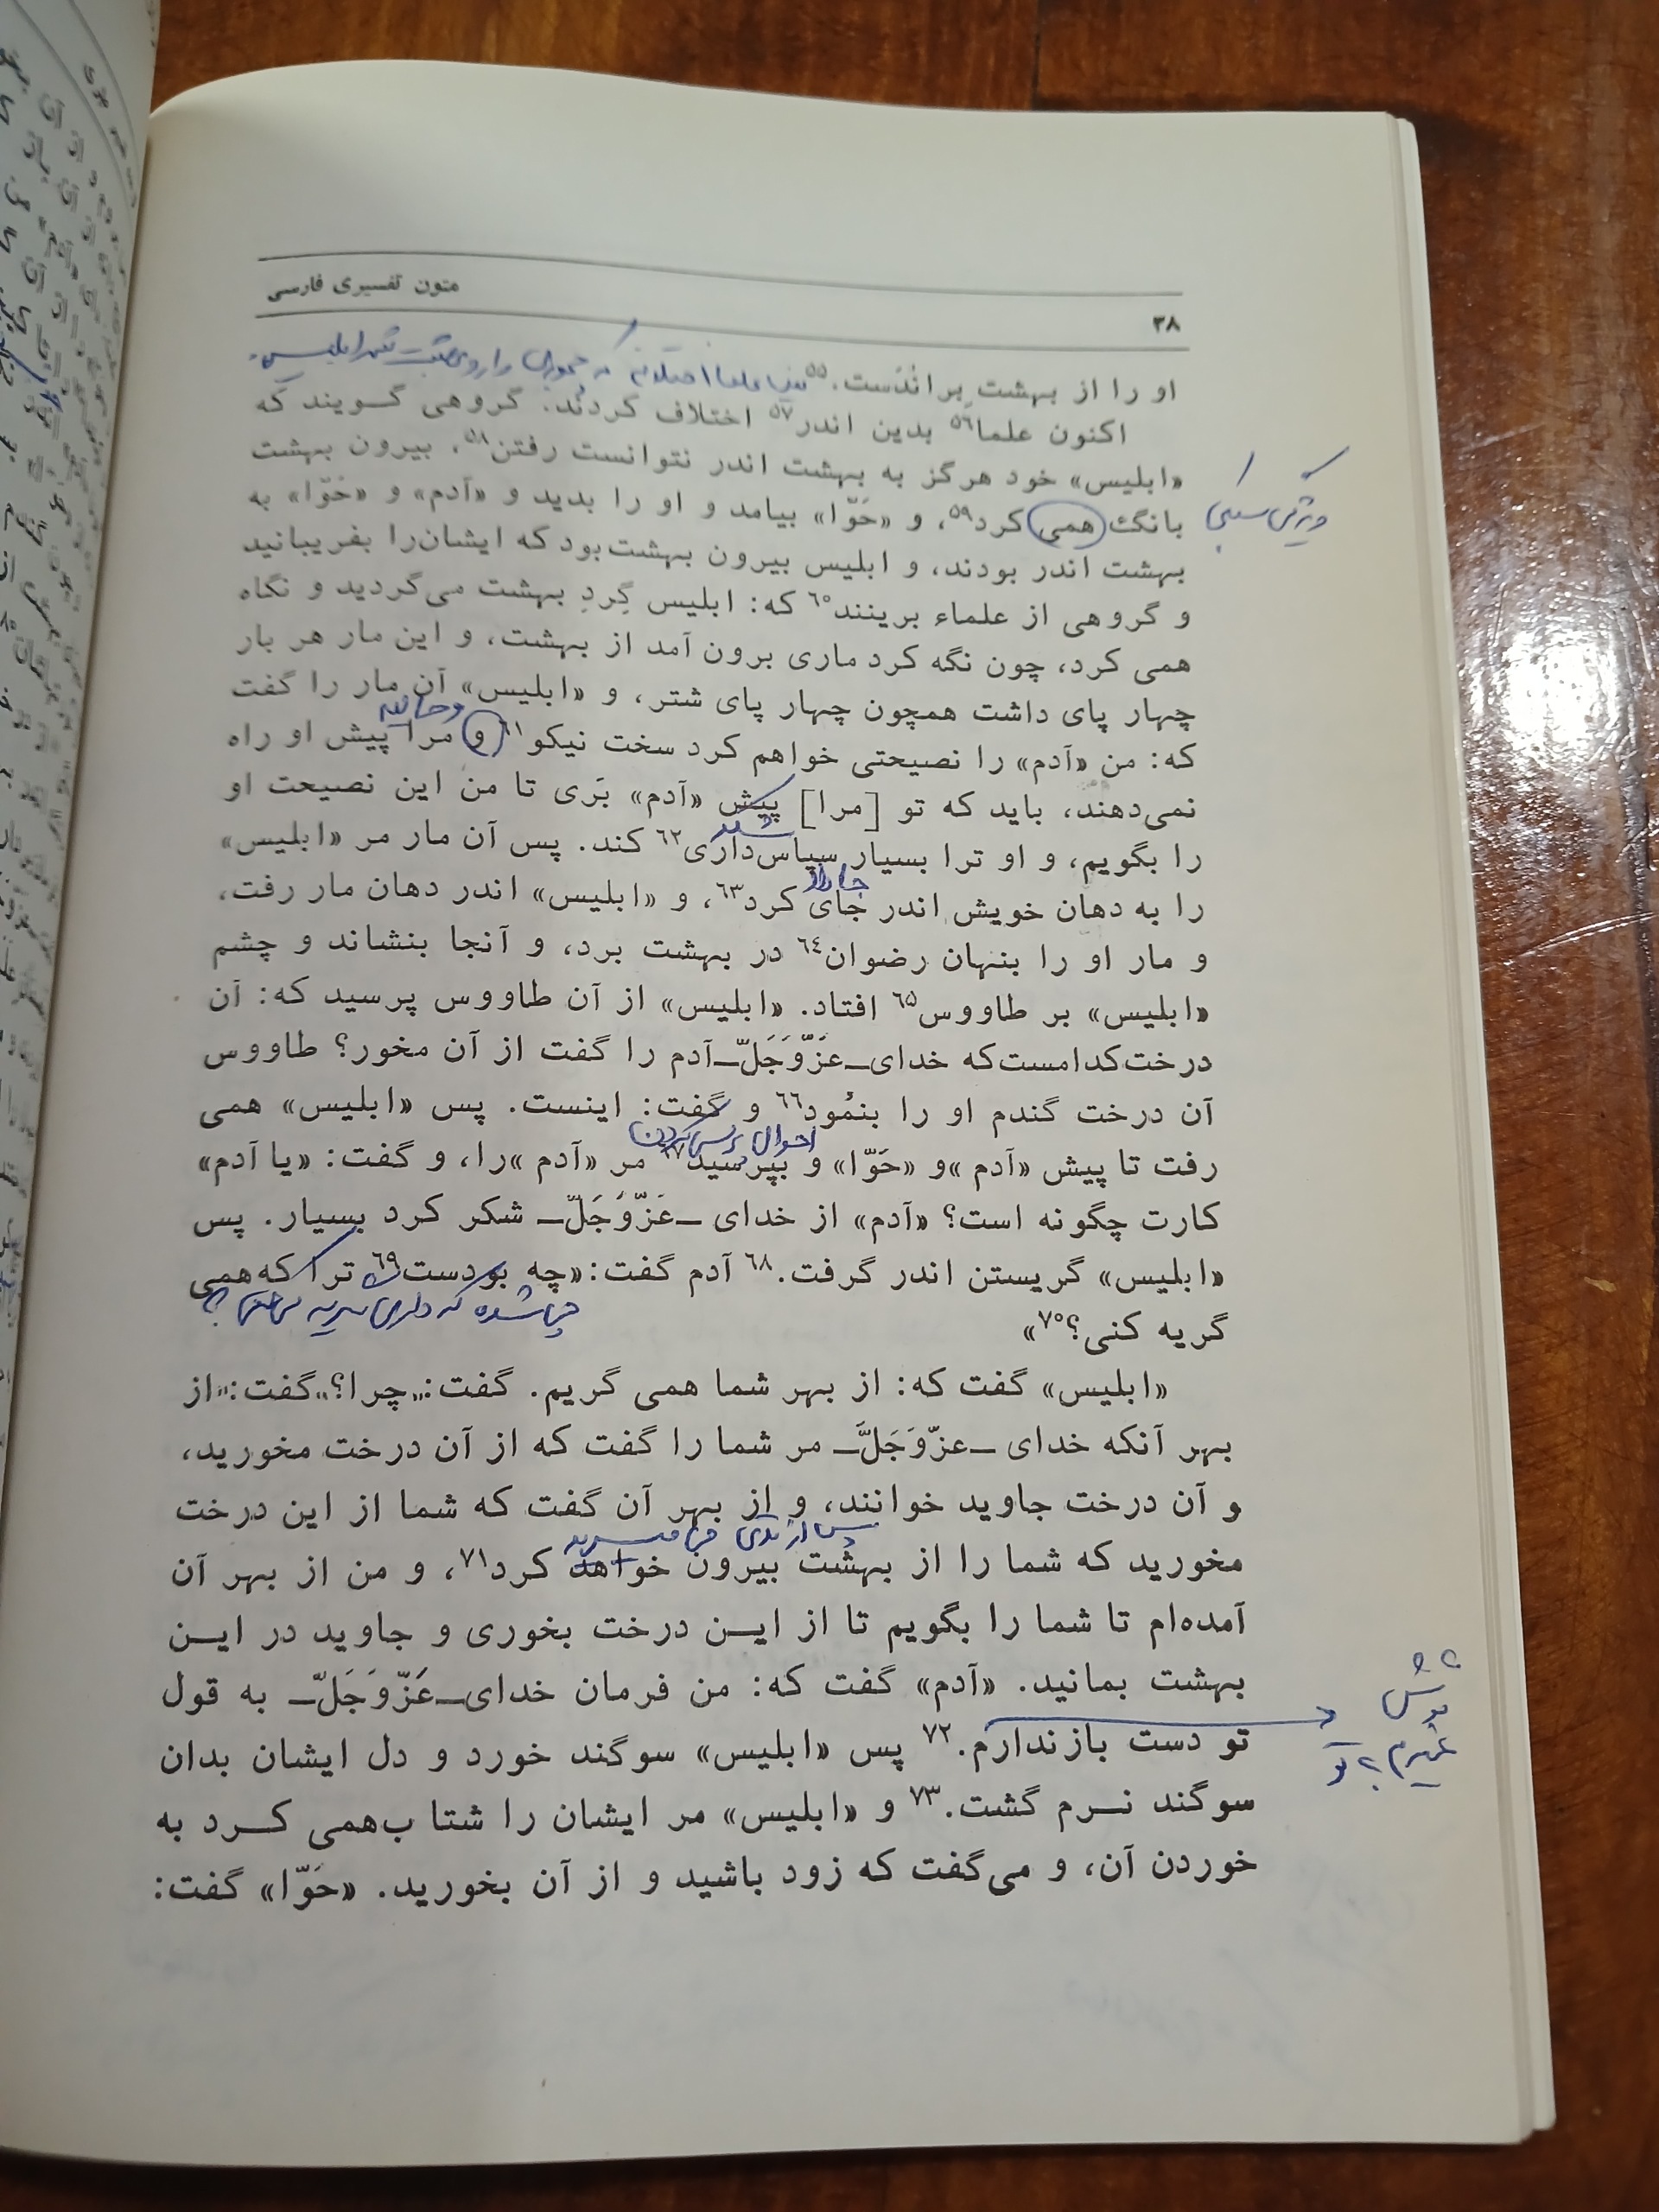 متون تفسیری فارسی
۳۸
او را از بهشت براندست.۵۵
اکنون علما۵۶ بدین اندر۵۷ اختلاف کردند. گروهی گویند که
«ابلیس» خود هرگز به بهشت اندر نتوانست رفتن۵۸، بیرون بهشت
بانگ همی کرد۵۹، و «حَوّا» بیامد و او را بدید و «آدم» و «حَوّا» به
ویژگی سبکی
بهشت اندر بودند، و ابلیس بیرون بهشت بود که ایشان را بفریبانید
و گروهی از علماء برینند۶۰ که: ابلیس گِردِ بهشت می‌گردید و نگاه
همی کرد، چون نگه کرد ماری برون آمد از بهشت، و این مار هر بار
چهار پای داشت همچون چهار پای شتر، و «ابلیس» آن مار را گفت
وحالیه
که: من «آدم» را نصیحتی خواهم کرد سخت نیکو۶۱ و مرا پیش او راه
نمی‌دهند، باید که تو [مرا] پیش «آدم» بَری تا من این نصیحت او
را بگویم، و او ترا بسیار سپاس‌داری۶۲ کند. پس آن مار مر «ابلیس»
را به دهان خویش اندر جای کرد۶۳، و «ابلیس» اندر دهان مار رفت،
و مار او را بنهان رضوان۶۴ در بهشت برد، و آنجا بنشاند و چشم
«ابلیس» بر طاووس۶۵ افتاد. «ابلیس» از آن طاووس پرسید که: آن
درخت کدامست که خدای ـ عَزَّوَجَلّ ـ آدم را گفت از آن مخور؟ طاووس
آن درخت گندم او را بنمُود۶۶ و گفت: اینست. پس «ابلیس» همی
احوال پرسی کردن
رفت تا پیش «آدم» و «حَوّا» و بپرسید۶۷ مر «آدم» را، و گفت: «یا آدم»
کارت چگونه است؟ «آدم» از خدای ـ عَزّوَجَلّ ـ شکر کرد بسیار. پس
«ابلیس» گریستن اندر گرفت.۶۸ آدم گفت: «چه بودست۶۹ ترا که همی
گریه کنی؟۷۰»
«ابلیس» گفت که: از بهر شما همی گریم. گفت: „چرا؟„ گفت: "از
بهر آنکه خدای ـ عزّوَجَلَّ ـ مر شما را گفت که از آن درخت مخورید،
و آن درخت جاوید خوانند، و از بهر آن گفت که شما از این درخت
مخورید که شما را از بهشت بیرون خواهد کرد۷۱، و من از بهر آن
آمده‌ام تا شما را بگویم تا از این درخت بخوری و جاوید در این
بهشت بمانید. «آدم» گفت که: من فرمان خدای ـ عَزّوَجَلّ ـ به قول
تو دست بازندارم.۷۲ پس «ابلیس» سوگند خورد و دل ایشان بدان
سوگند نرم گشت.۷۳ و «ابلیس» مر ایشان را شتاب همی کرد به
خوردن آن، و می‌گفت که زود باشید و از آن بخورید. «حَوّا» گفت: